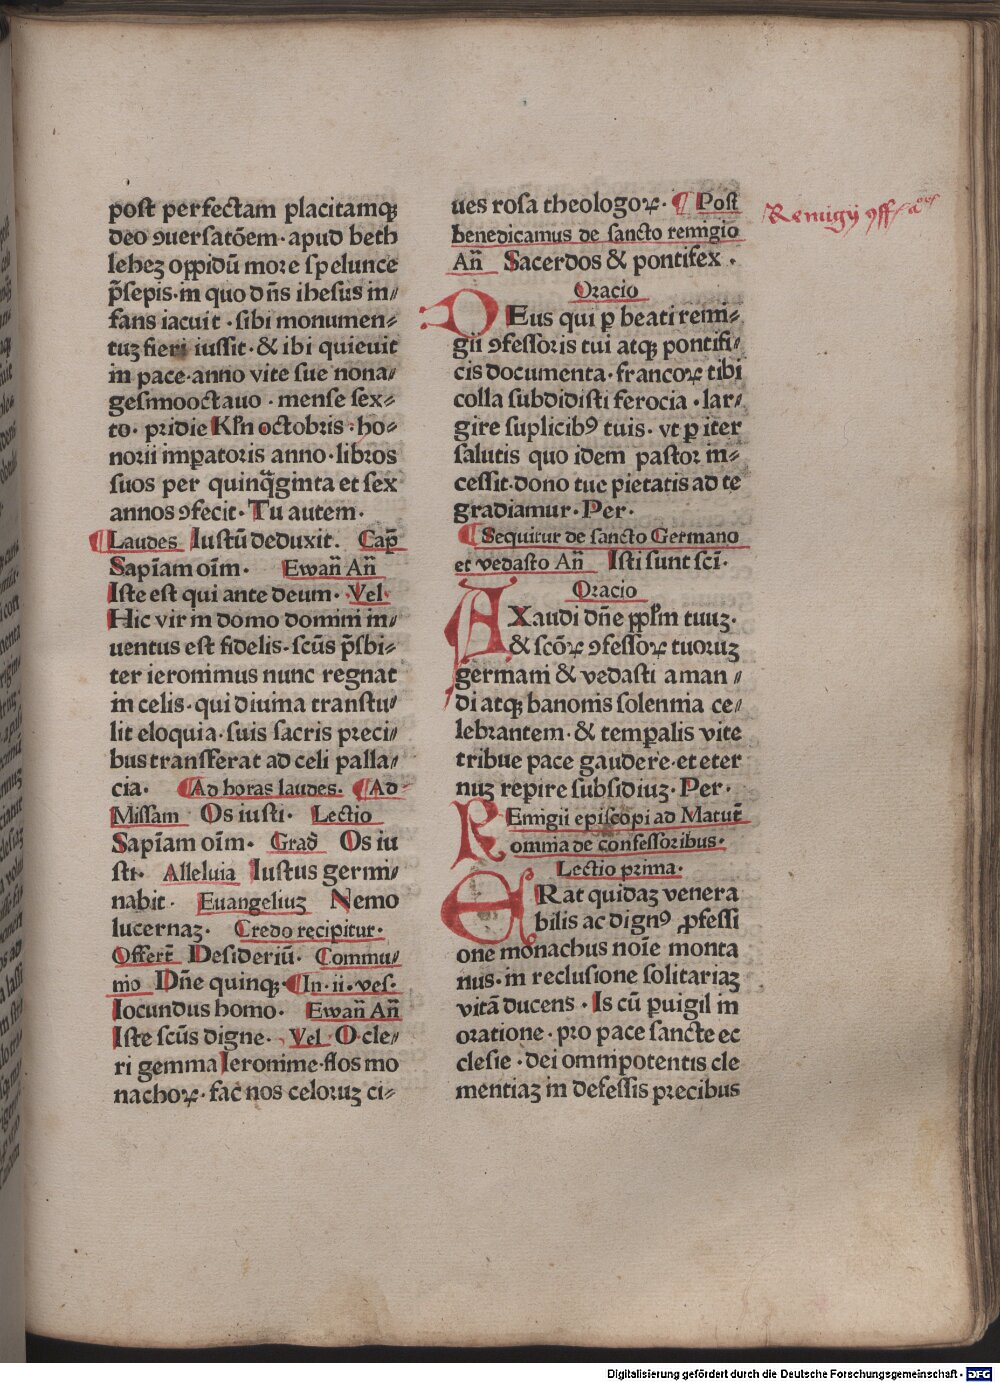 post perfectam placitamqꝫ
deo ꝯuersatōem · apud beth
leheꝫ oppidū more spelunce
p̄sepis · in quo dn̄s ihesus in⸗
fans iacuit · sibi monumen⸗
tuꝫ fieri iussit · & ibi quieuit
in pace · anno vite sue nona⸗
gesimooctauo · mense sex⸗
to · pridie Kl̄n octobris · ho⸗
norii imꝑatoris anno · libros
suos per quinq̄ginta et sex
annos ꝯfecit · Tu autem ·
¶ Laudes Iustū deduxit . Cap̄
Sapīam oīm · Ewan̄ An̄
Iste est qui ante deum · Vel
Hic vir in domo domini in⸗
uentus est fidelis · scūs p̄sbi⸗
ter ieronimus nunc regnat
in celis · qui diuina transtu⸗
lit eloquia · suis sacris preci⸗
bus transferat ad celi palla⸗
cia · ¶ Ad horas laudes . ¶ Ad
Missam Os iusti · Lectio
Sapīam oīm · Grad̄ Os iu
sti · Alleluia Iustus germi⸗
nabit · Euangeliuꝫ Nemo
lucernaꝫ · Credo recipitur ·
Offert̄ Desideriū · Commu⸗
nio Dn̄e quinqꝫ · ¶ In · ii · ves ·
Iocundus homo · Ewan̄ An̄
Iste scūs digne · Vel O cle⸗
ri gemma Ieronime · flos mo
nachoꝝ · fac nos celoruꝫ ci⸗
ues rosa theologoꝝ · ¶ Post
benedicamus de sancto remigio
An̄ Sacerdos & pontifex ·
Oracio
DEus qui ꝑ beati remi⸗
gii ꝯfessoris tui atqꝫ pontifi⸗
cis documenta · francoꝝ tibi
colla subdidisti ferocia · lar⸗
gire suplicibꝯ tuis · vt ꝑ iter
salutis quo idem pastor in⸗
cessit · dono tue pietatis ad te
gradiamur · Per ·
¶ Sequitur de sancto Germano
et vedasto An̄ Isti sunt scī ·
Oracio
EXaudi dn̄e ꝓpl̄m tuuꝫ ·
& scōꝝ ꝯfessoꝝ tuoruꝫ
germani & vedasti aman⸗
di atqꝫ bauonis solennia ce⸗
lebrantem · & temꝑalis vite
tribue pace gaudere · et eter
nuꝫ reꝑire subsidiuꝫ · Per ·
REmigii episcopi ad Matut̄
omnia de confessoribus ·
Lectio prima ·
ERat quidaꝫ venera
bilis ac dignꝯ ꝓfessi
one monachus noīe monta
nus · in reclusione solitariaꝫ
vitā ducens · Is cū ꝑuigil in
oratione · pro pace sancte ec
clesie · dei omnipotentis cle
mentiaꝫ in defessis precibus
Remigij ꝯff
Digitalisierung gefördert durch die Deutsche Forschungsgemeinschaft - DFG